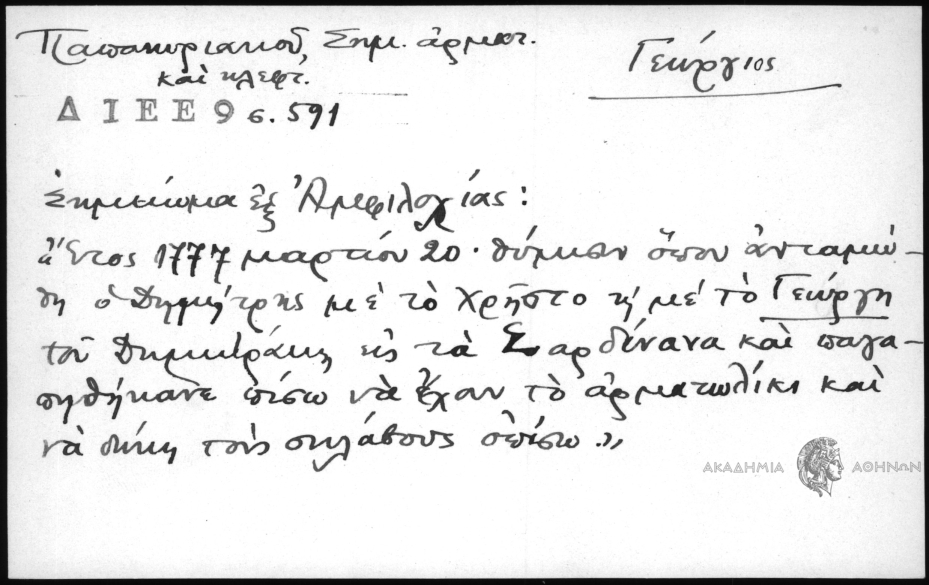 Παπακυριακού, Σημ. ἁρματ.
καὶ κλεφτ.
Γεώργιος
Δ Ι Ε Ε 9 σ. 591
Σημείωμα ἐξ Ἀμφιλοχίας:
«Ἔτος 1777 μαρτίου 20. θύμισιν ὅπου ἀνταμώ-
θη ὁ Δημήτρης μὲ τὸ Χρῆστο κὶ μὲ τὸ Γεώργη
τοῦ Δημητράκη εἰς τὰ Σαρδίνανα καὶ παγα-
πηθήκανε ἐπίσω νὰ ἔχουν τὸ ἀρματωλίκι καὶ
νὰ δώκη τοὺς σκλάβους ὀπίσω.»
ΑΚΑΔΗΜΙΑ ΑΘΗΝΩΝ